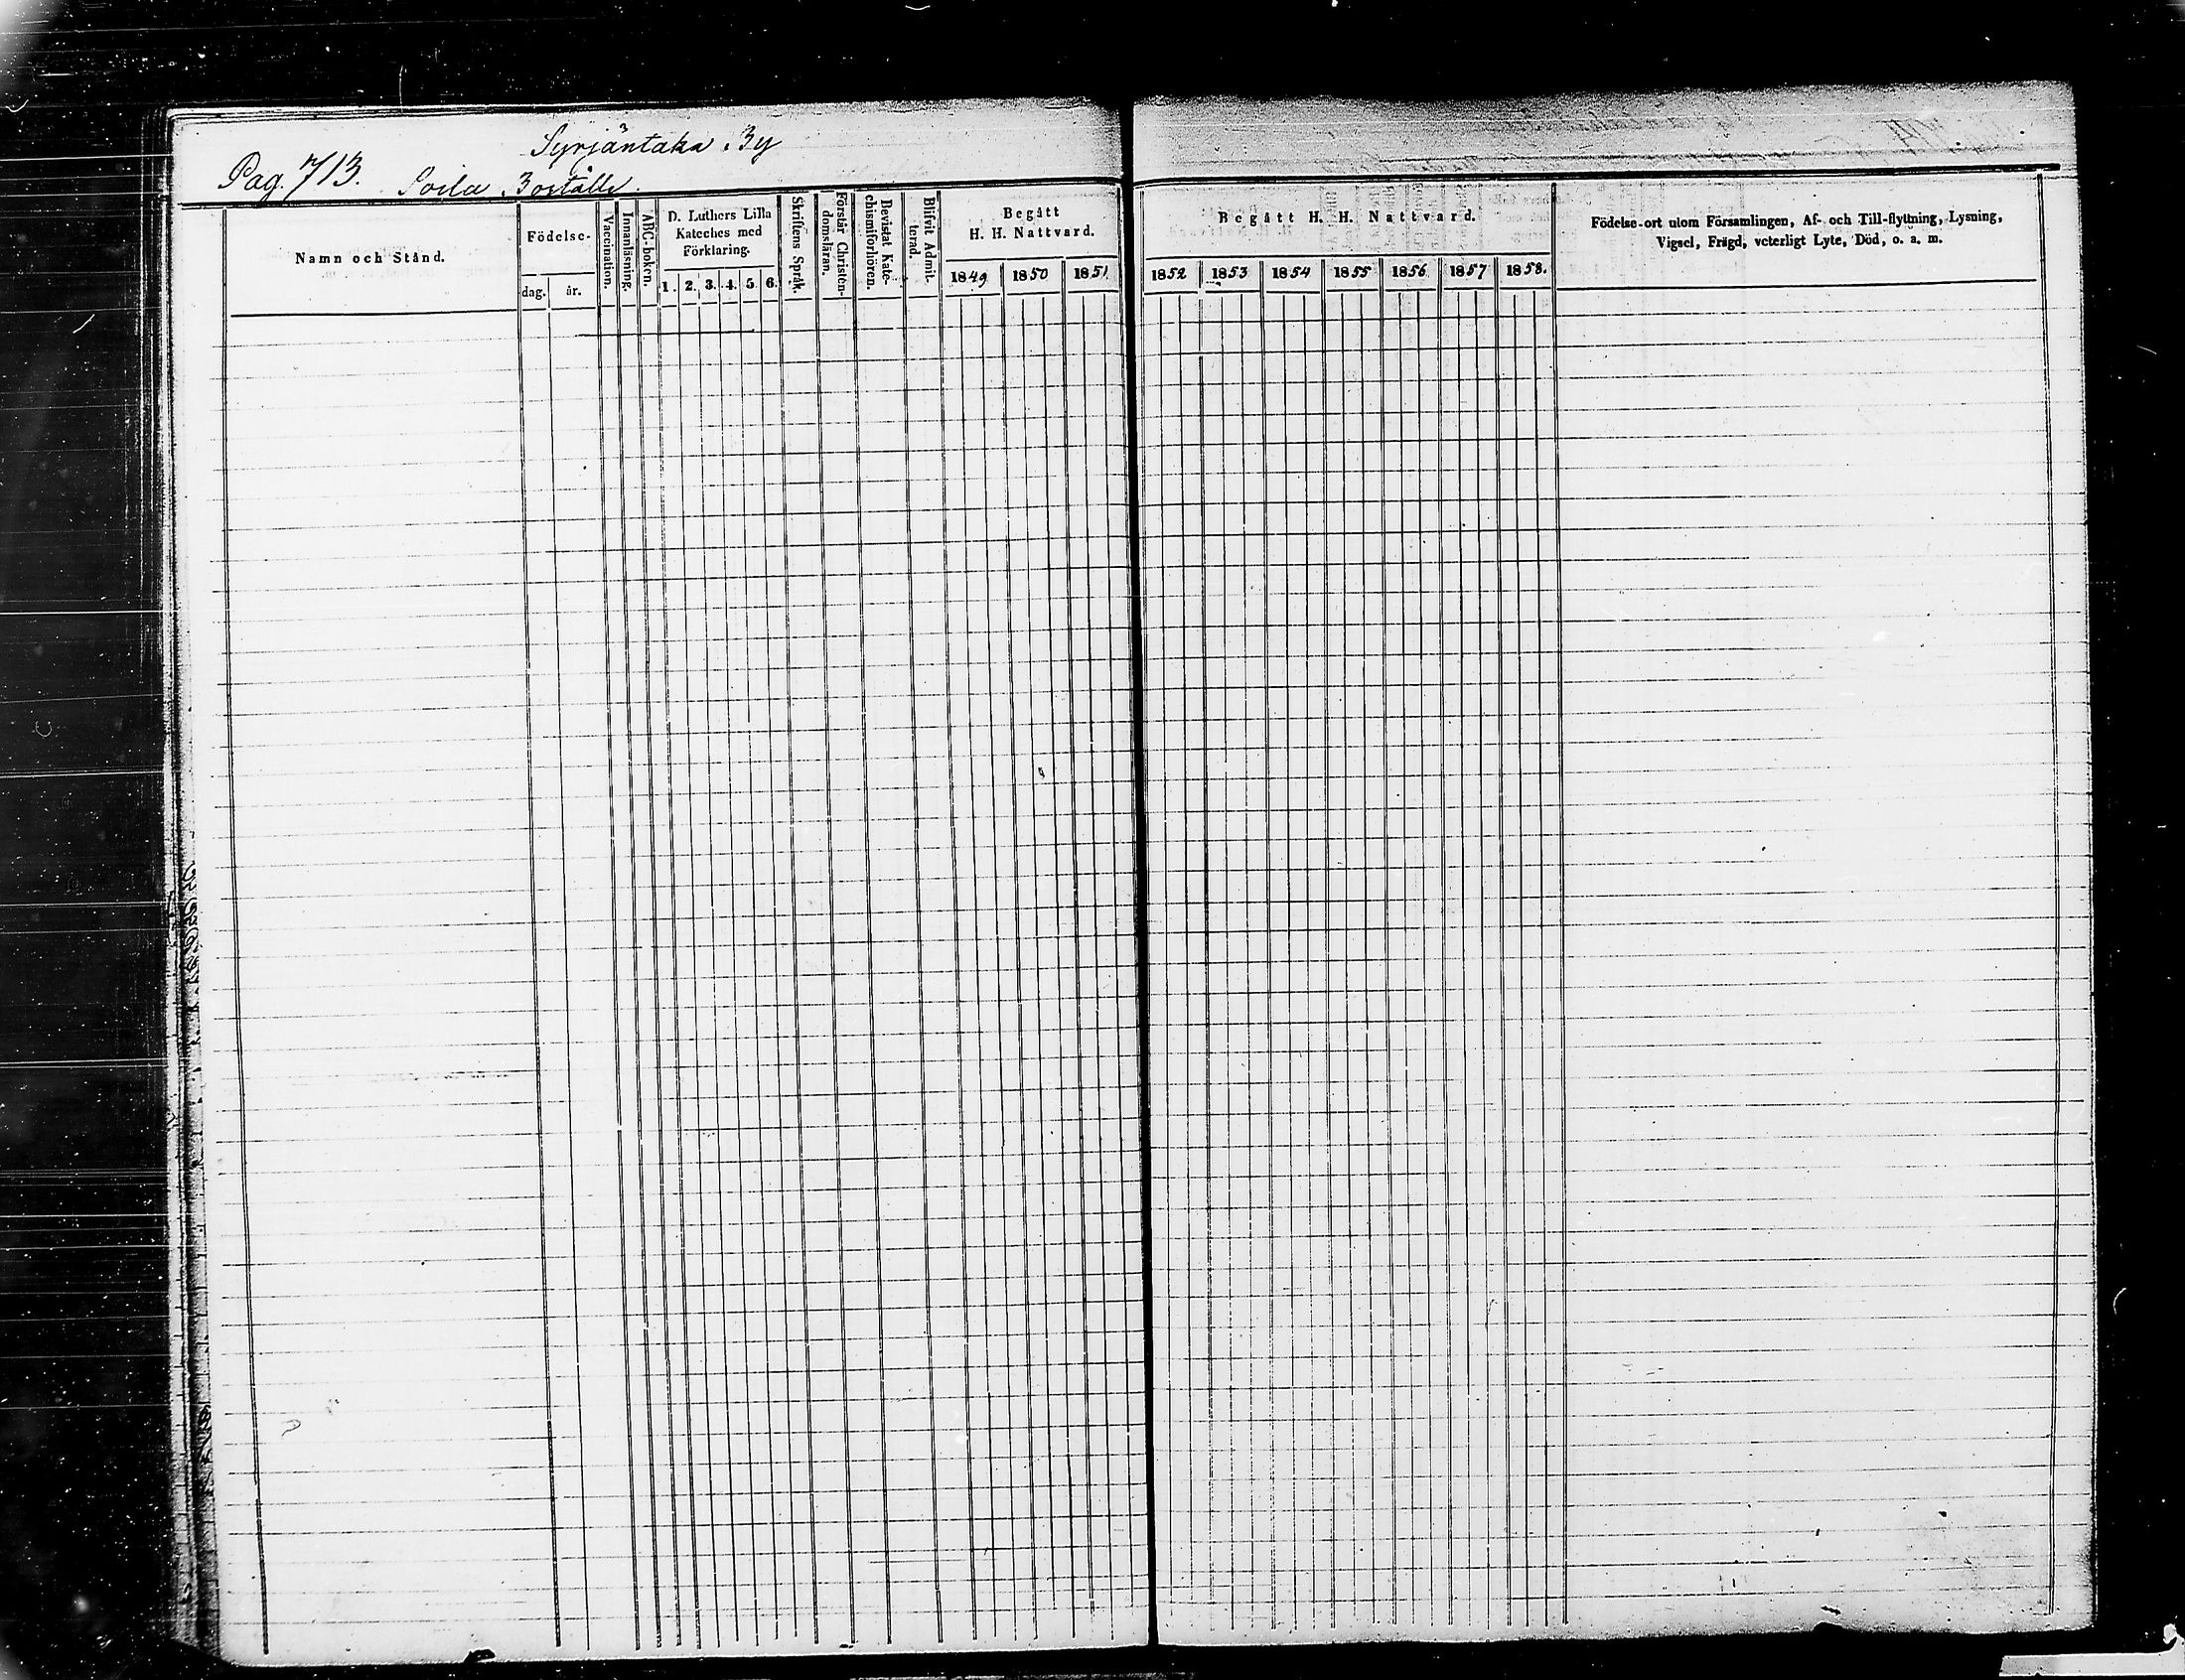 Syrjäntaka By
Pag. 713. Soila Boställe.
Namn och Stånd.
Födelse-
dag.
år.
Vaccination.
Innanläsning.
ABC-boken.
D. Luthers Lilla
Kateches med
Förklaring.
1. 2. 3. 4. 5. 6.
Skriftens Språk.
Förstår Christen-
domsläran.
Bevistat Kate-
chismiförhören.
Blifvit Admit-
terad.
Begått
H. H. Nattvard.
1849 1850 1851
Begått H. H. Nattvard.
1852 1853 1854 1855 1856 1857 1858.
Födelse-ort utom Församlingen, Af- och Till-flyttning, Lysning,
Vigsel, Frägd, veterligt Lyte, Död, o. a. m.